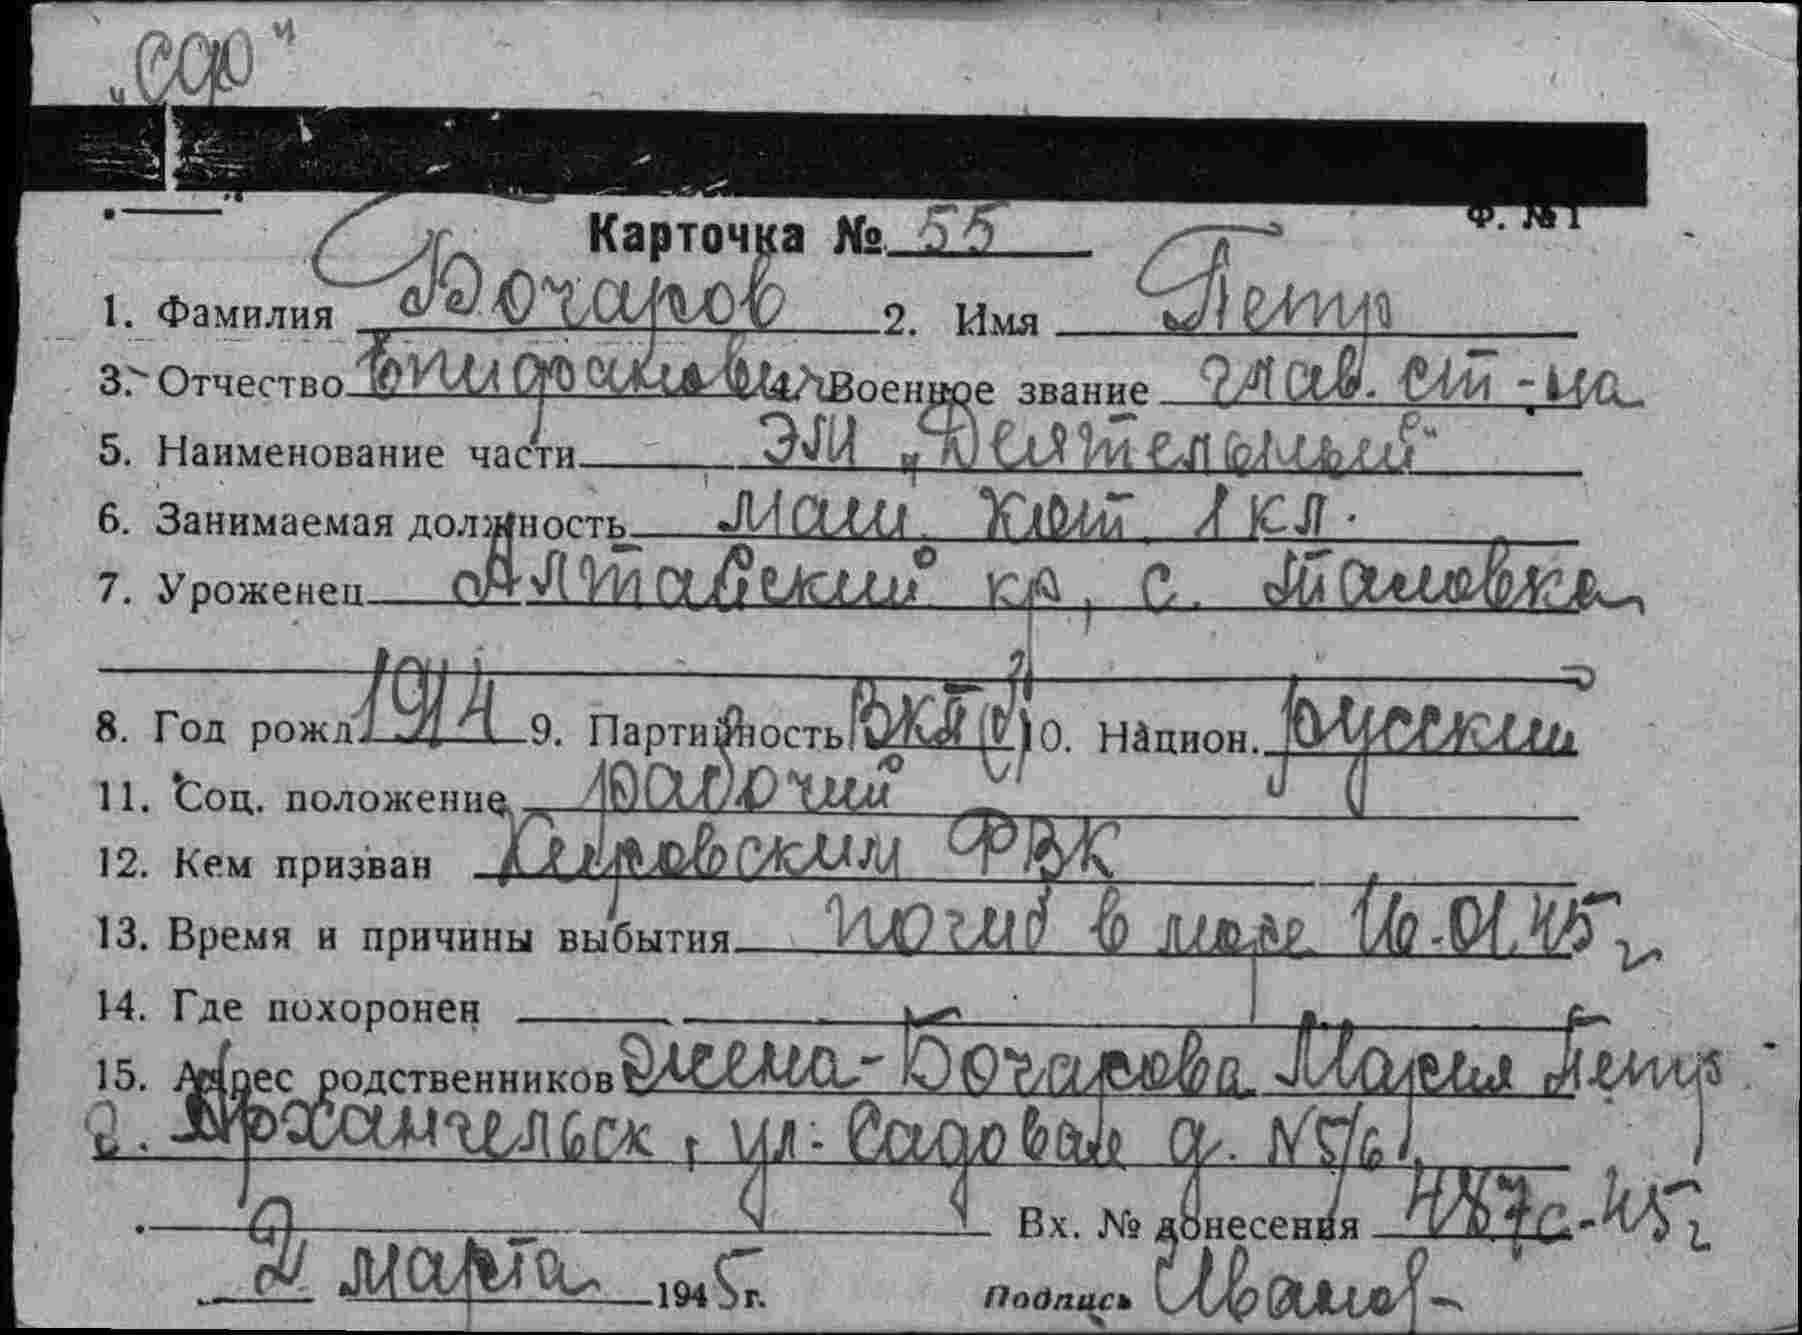 „СФ"
Ф. № 1
Карточка № 55
1. Фамилия Бочаров 2. Имя Петр
3. Отчество Епифанович 4. Военное звание глав. ст-на
5. Наименование части ЭМ „Деятельный"
6. Занимаемая должность маш. кот. 1 кл.
7. Уроженец Алтайский кр, с.
8. Год рожд. 1914 9. Партийность ВКП(б) 10. Национ. русский
11. Соц. положение рабочий
12. Кем призван Кировским РВК
13. Время и причины выбытия погиб в море 16.01.45 г
14. Где похоронен
15. Адрес родственников Жена - Бочарова Мария Петр
г. Архангельск, ул. Садовая д. N 5/6
Вх. № донесения 487с-45г
2 марта 1945 г. Подпись Иванов